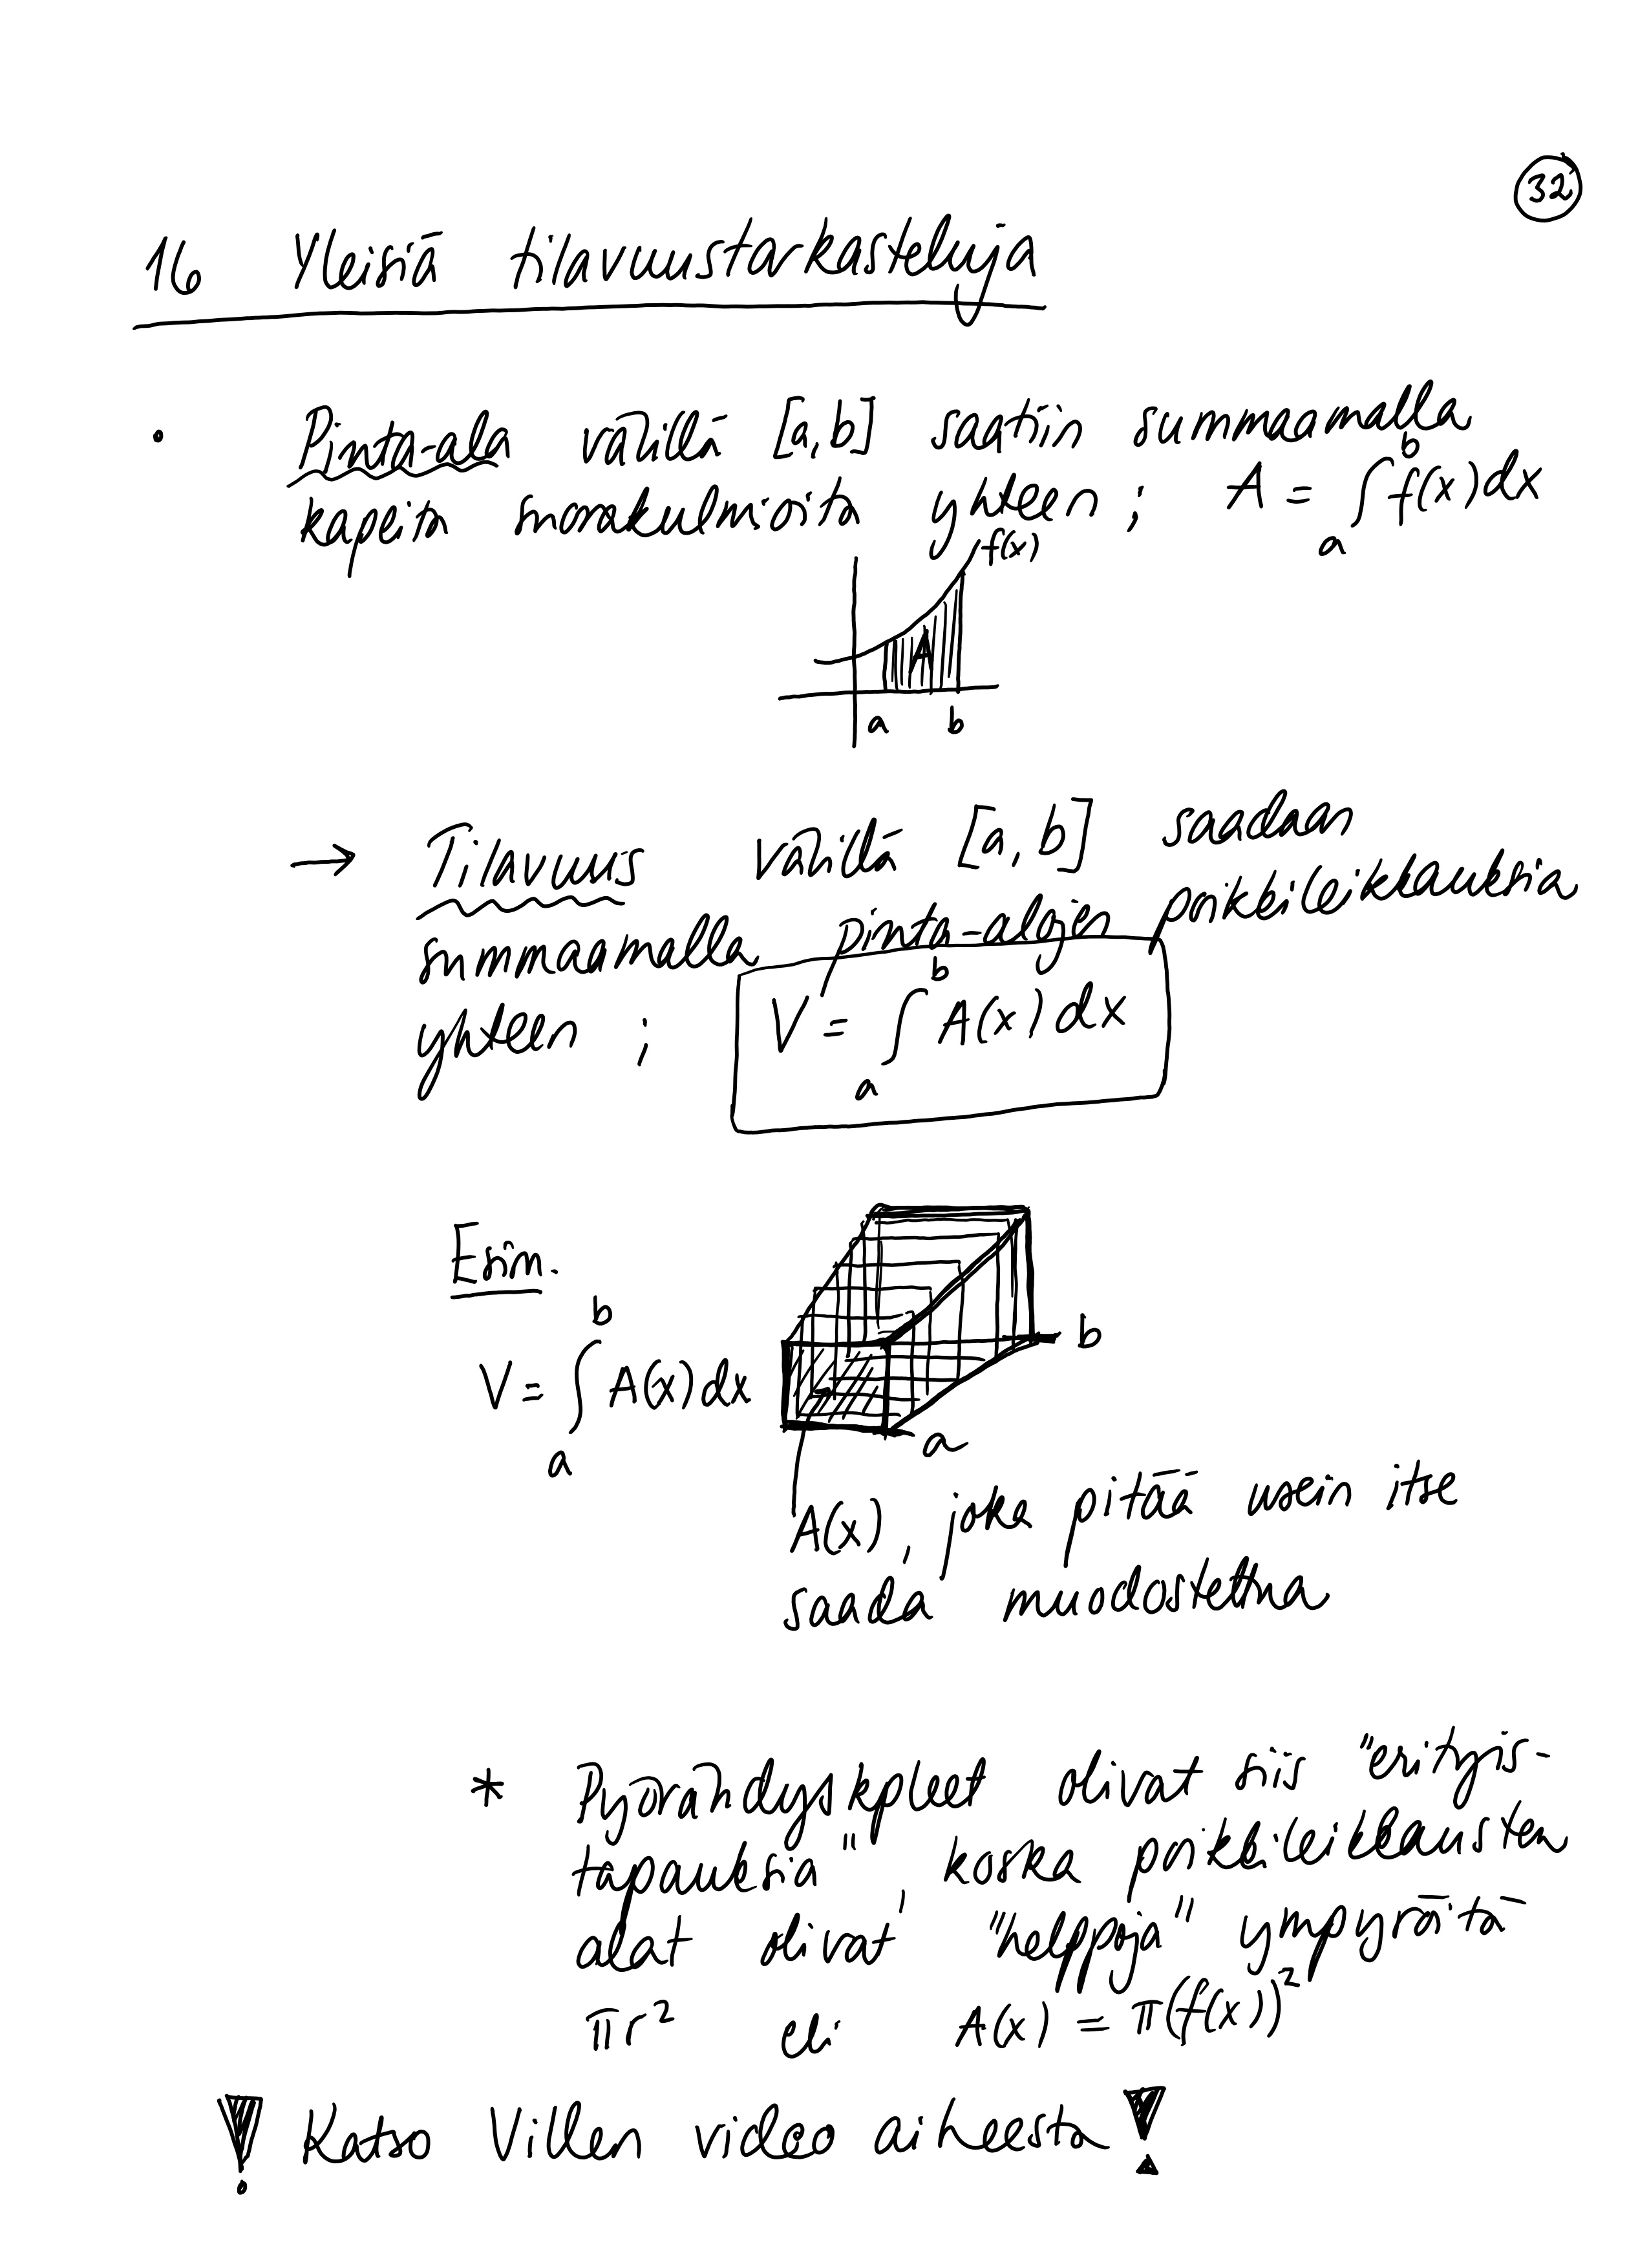 32
16 Yleisiä tilavuustarkasteluja
• Pinta-ala välillä [a,b] saatiin summaamalla
kapeita suorakulmioita yhteen ; A = ∫_a^b f(x)dx
f(x)
A
a b
→ Tilavuus välillä [a,b] saadaan
summaamalla pinta-alojen poikkileikkauksia
yhteen ; V = ∫_a^b A(x)dx
Esim.
V = ∫_a^b A(x)dx
b
a
A(x), joka pitää usein itse
saada muodostettua
* Pyörähdyskpleet olivat siis "erityis-
tapauksia", koska poikkileikkausten
alat olivat "helppoja" ympyröitä
πr² eli A(x) = π(f(x))²
! Katso Villen video aiheesta !